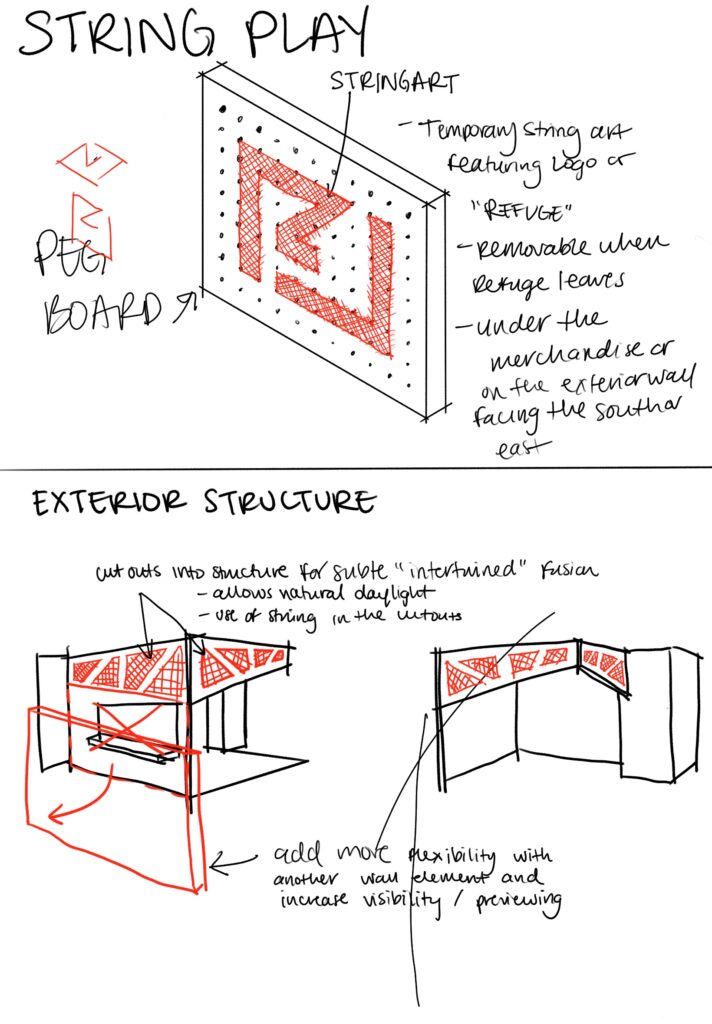 STRING PLAY
STRINGART
PEG
BOARD
- Temporary string art
featuring Logo or
"REFUGE"
- removable when
Refuge leaves
- under the
merchandise or
on the exterior wall
facing the south or
east
EXTERIOR STRUCTURE
cut outs into structure for subtle "intertwined" fusion
- allows natural daylight
- use of string in the cutouts
add more flexibility with
another wall element and
increase visibility / previewing